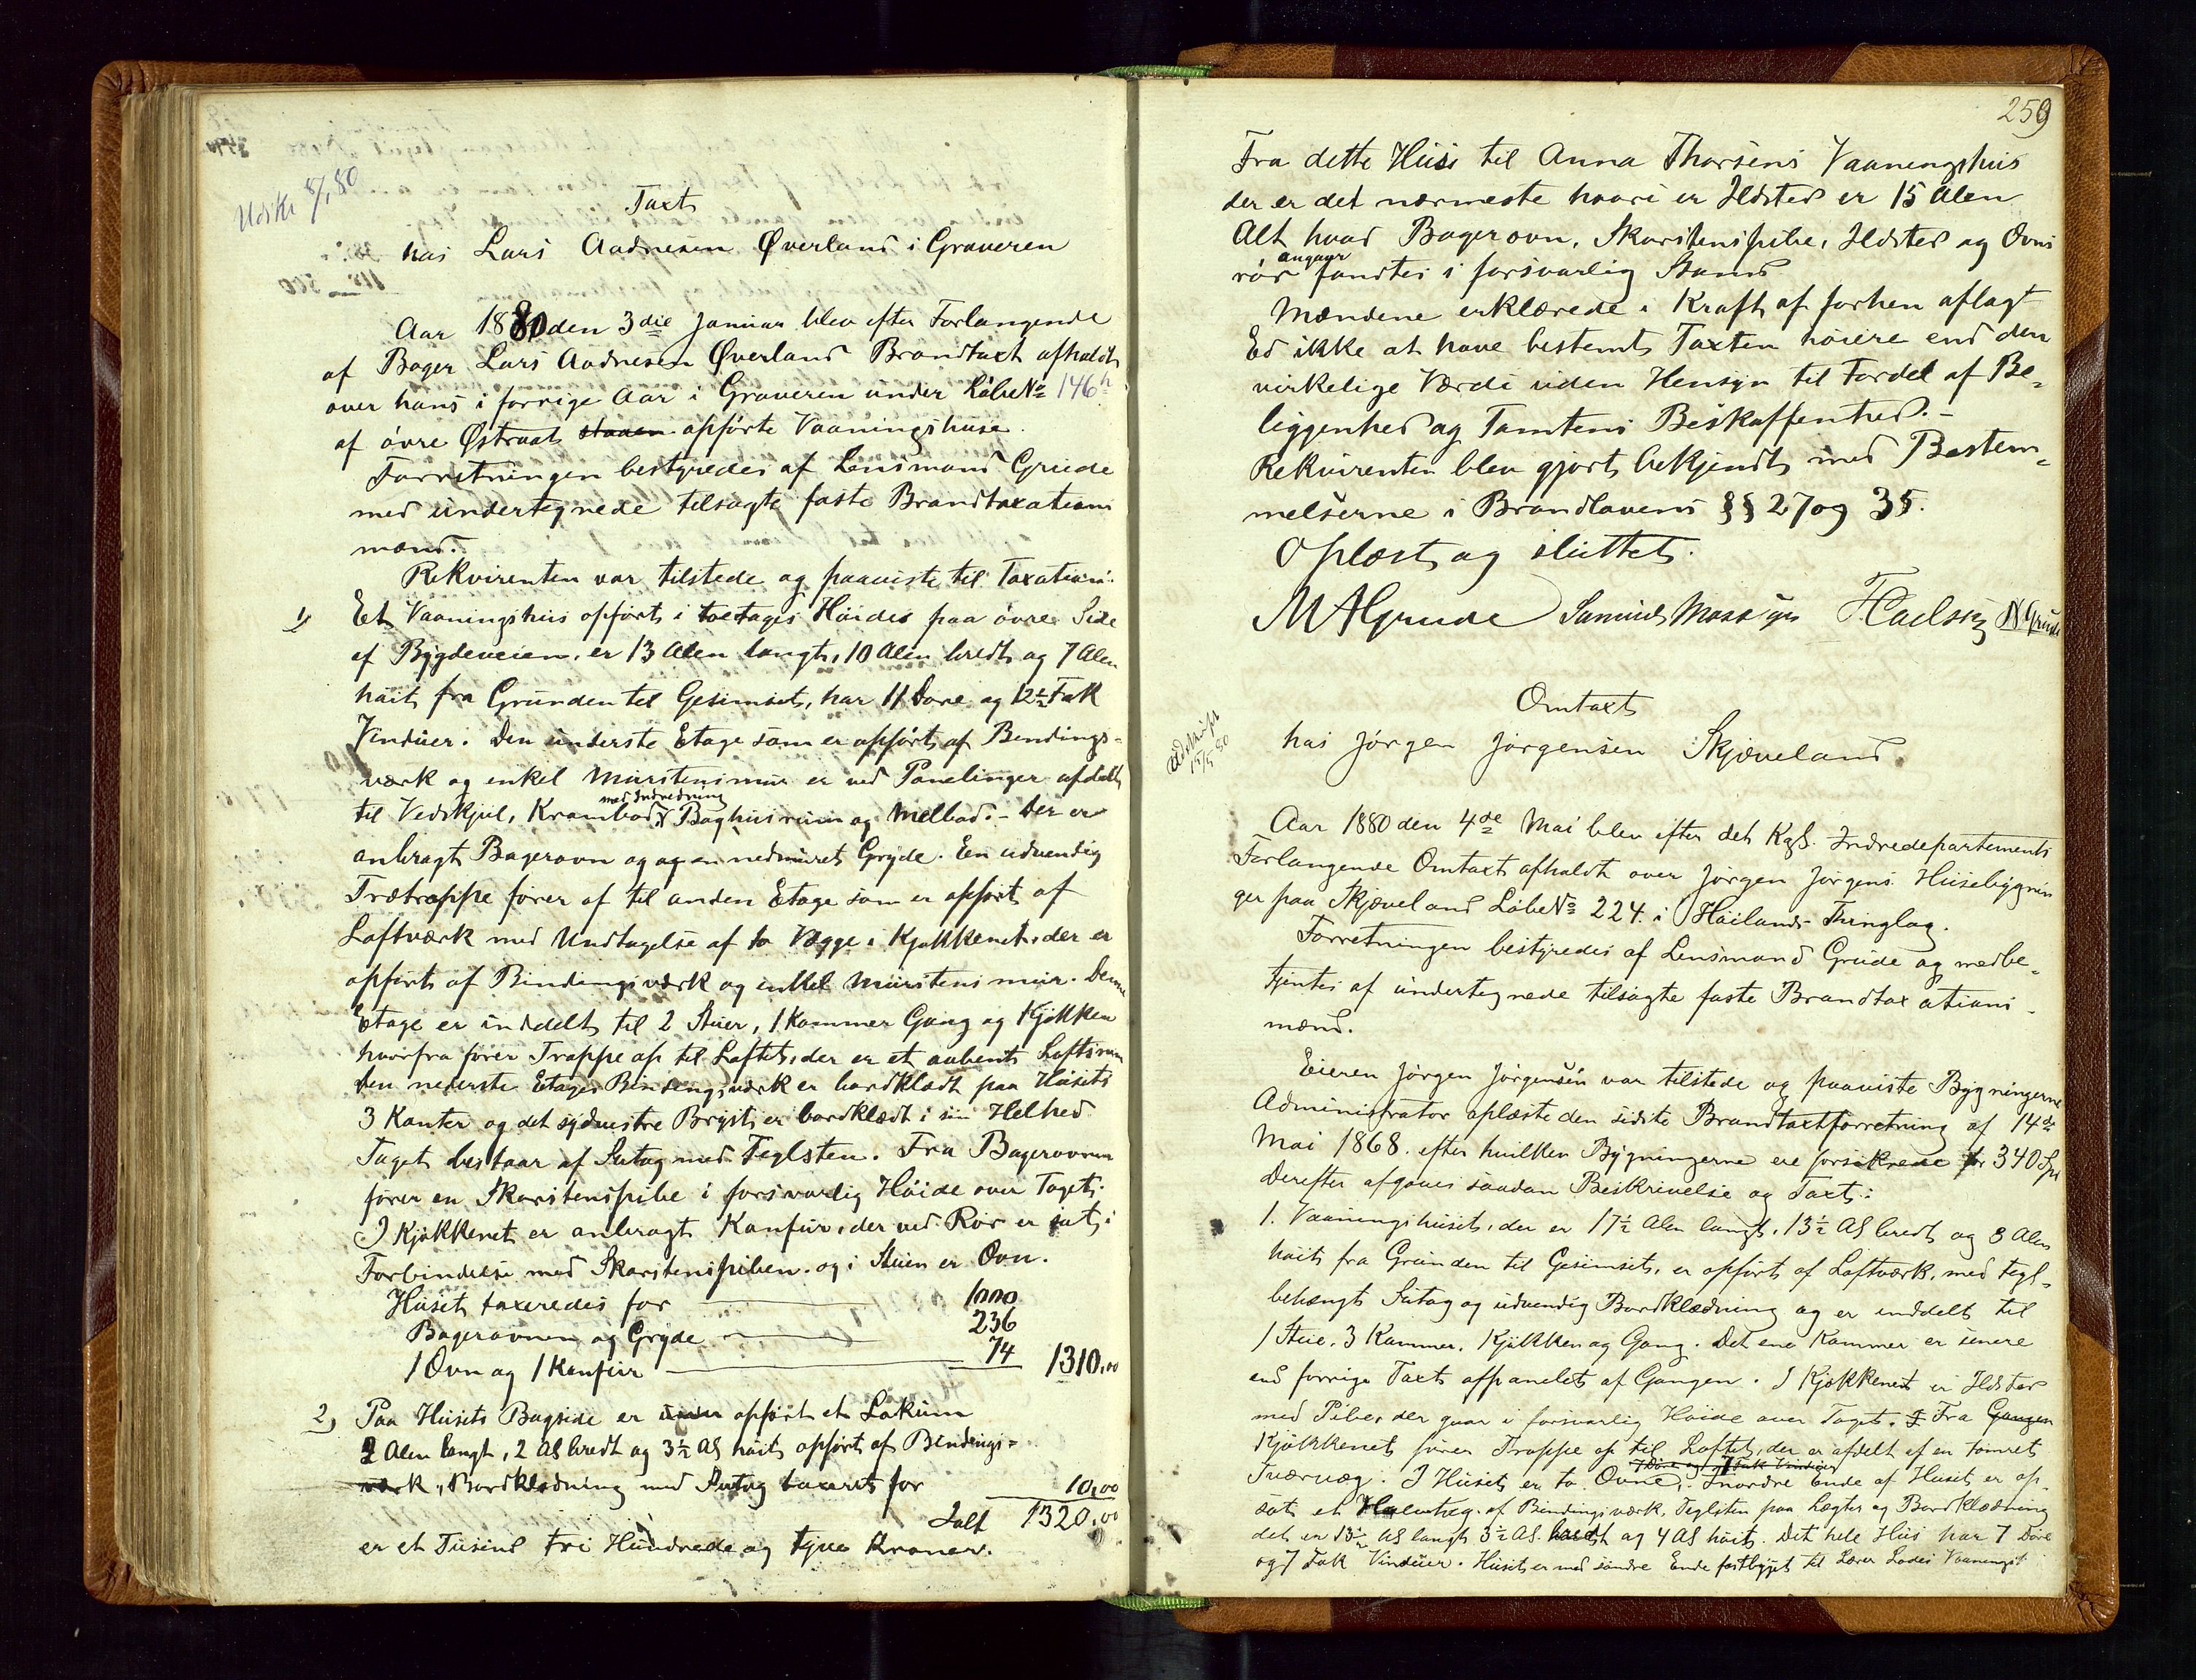 Udskr 8/1 80
Taxt
hos Lars Aadnesen Øverland i Graveren
Aar 1880 den 3die Januar blev efter Forlangende
af Bager Lars Aadnesen Øverland Brandtaxt afholdt
over hans i forrige Aar i Graveren under Løbe No 146
af øvre Østraat opførte Vaaningshuse.
Forretningen bestyredes af Lensmand Grude
med undertegnede tilsagte faste Brandtaxations
mænd.
Rekvirenten var tilstede og paaviste til Taxation:
1) Et Vaaningshus opført i toetages Høide paa øvre Side
af Bygdeveien, er 13 Alen langt, 10 Alen bredt og 7 Alen
høit fra Grunden til Gesimset, har 11 Døre og 12½ Fak
Vinduer. Den underste Etage som er opført af Bendings-
værk og enkel Murstensmur er ved Panelinger afdelt
til Vedskjul, Krambod med Indredning, Baghusrum og Melbod. - Der er
anbragt Bagerovn og og en nedmuret Gryde. En udvendig
Trætrappe fører af til anden Etage som er opført af
Loftværk med Undtagelse af to Vægge i Kjøkkenet, der er
opført af Bindingsværk og enkel Murstens mur. Denne
Etage er inddelt til 2 Stuer, 1 Kammer Gang og Kjøkken
hvorfra fører Trappe op til Loftet, der er et aabent Loftsrum
Den nederste Etages Bindingsværk er bordklædt paa Husets
3 Kanter og det sydvestre Bryst er bordklædt i sin Helhed
Taget bestaar af Sutag med Teglsten. Fra Bagerovnen
fører en Skorstenspibe i forsvarlig Høide over Taget.
I Kjøkkenet er anbragt Komfur, der ved Rør er sat i
Forbindelse med Skorstenspiben. og i Stuen er Ovn.
Huset taxeredes for 1000
Bagerovnen og Gryde 236
1 Ovn og 1 Komfur 74 1310,00
2) Paa Husets Bagside er under opført et Lokum
2 Alen langt, 2 Al bredt og 3½ Al høit opført af Bendings-
værk, Bordklædning med Sutag taxeret for 10,00
Ialt 1320,00
er et Tusind tre Hundrede og tyve Kroner.
259
Fra dette Hus til Anna Thorsens Vaaningshus
der er det nærmeste hvori er Ildsted er 15 Alen
Alt hvad Bagerovn, Skorstenspibe, Ildsted og Ovns
rør angaar fandtes i forsvarlig Stand
Mændene erklærede i Kraft af forhen aflagt
Ed ikke at have bestemt Taxten høiere end den
virkelige Værdi uden Hensyn til Fordel af Be-
liggenhed og Tomtens Beskaffenhed. -
Rekvirenten blev gjort bekjendt med Bestem-
melserne i Brandlovens §§ 27 og 35.
Oplæst og sluttet.
M A Grude Samuel Mossige
Udskrift 15/5 80
Omtaxt
hos Jørgen Jørgensen Skjæveland.
Aar 1880 den 4de Mai blev efter det Kgl. Indredepartements
Forlangende Omtaxt afholdt over Jørgen Jørgens. Husebygnin
ger paa Skjæveland Løbe No 224 i Høilands Thinglag.
Forretningen bestyredes af Lensmand Grude og medbe-
tjentes af undertegnede tilsagte faste Brandtaxations-
mænd.
Eieren Jørgen Jørgensen var tilstede og paaviste Bygningerne
Administrator oplæste den sidste Brandtaxtforretning af 14de
Mai 1868. efter hvilken Bygningerne ere forsikrede for 340 Spd
Derefter afgaves saadan Beskrivelse og Taxt:
1. Vaaningshuset, der er 17½ Alen langt, 13½ Al bredt og 3 Alen
høit fra Grunden til Gesimset, er opført af Loftværk, med tegl-
behængt Sutag og udvendig Bordklædning og er inddelt til
1 Stue, 3 Kammer, Kjøkken og Gang. Det ene Kammer er senere
end forrige Taxt afpanelet af Gangen. I Kjøkkenet er Ildsted
med Pibe, der gaar i forsvarlig Høide over Taget. I Fra Gangen
Kjøkkenet fører Trappe op til Loftet, der er afdelt af en tømret
Tværvæg. I Huset er to Ovne, 7 Døre og 7 Fak Vinduer. I nordre Ende af Huset er op-
sat et af Bindingsværk, Teglsten paa Lægter og Bordklædning
det er 13½ Al langt 3½ Al. bredt og 4 Al høit. Det hele Hus har 7 Døre
og 7 Fak Vinduer. Huset er med søndre Ende fastbygget til Lars Vaaningsh